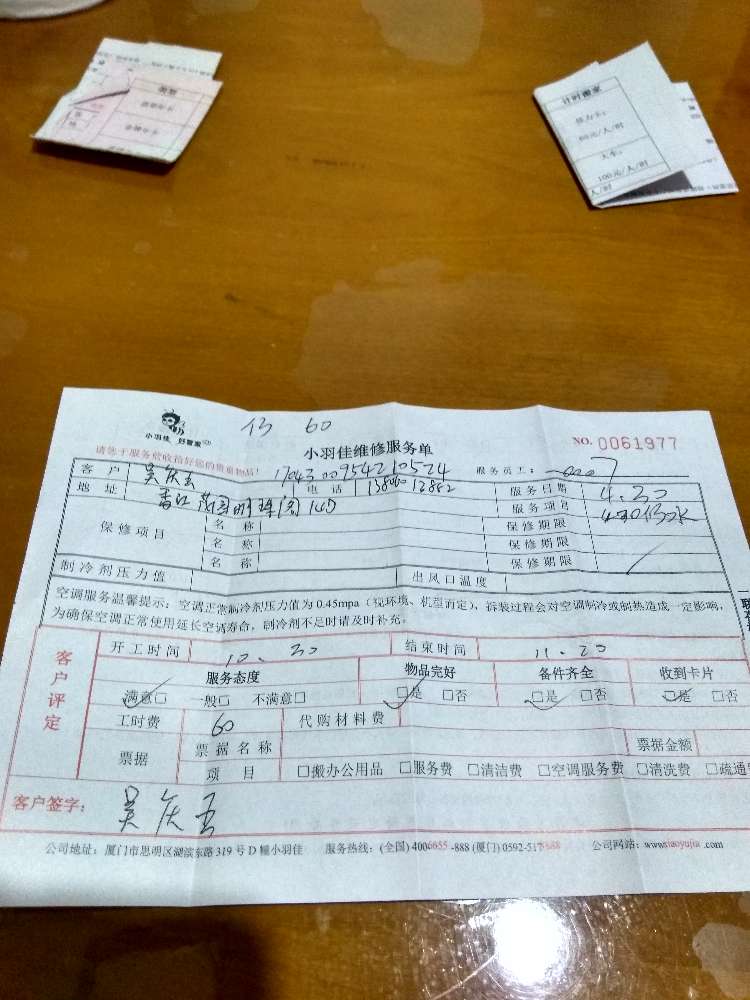 类型
计时搬家
佳力卡:
80元/人/时
大卡:
100元/人/时
人/时
小羽佳 好管家
60
小羽佳维修服务单
NO. 0061977
请您于服务前收拾好您的贵重物品!
服务员工:
客户 吴庆玉 1704300954210524
地址 香江花园明珠阁14D 电话
服务日期 4.30
服务项目
保修项目
名称 保修期限
名称 保修期限
名称 保修期限
制冷剂压力值 出风口温度
空调服务温馨提示:空调正常制冷剂压力值为0.45mpa(视环境、机型而定),拆装过程会对空调制冷或制热造成一定影响,
为确保空调正常使用延长空调寿命,制冷剂不足时请及时补充。
客户评定
开工时间 10.20 结束时间 11.20
服务态度 物品完好 备件齐全 收到卡片
满意□ 一般□ 不满意□ □是 □否 □是 □否 □是 □否
工时费 60 代购材料费
票据 票据名称 票据金额
项目 □搬办公用品 □服务费 □清洁费 □空调服务费 □清洗费 □疏通
客户签字: 吴庆玉
公司地址:厦门市思明区湖滨东路319号D幢小羽佳 服务热线:(全国)4006655-888 (厦门)0592-517 公司网站:www.xiaoyujia.com